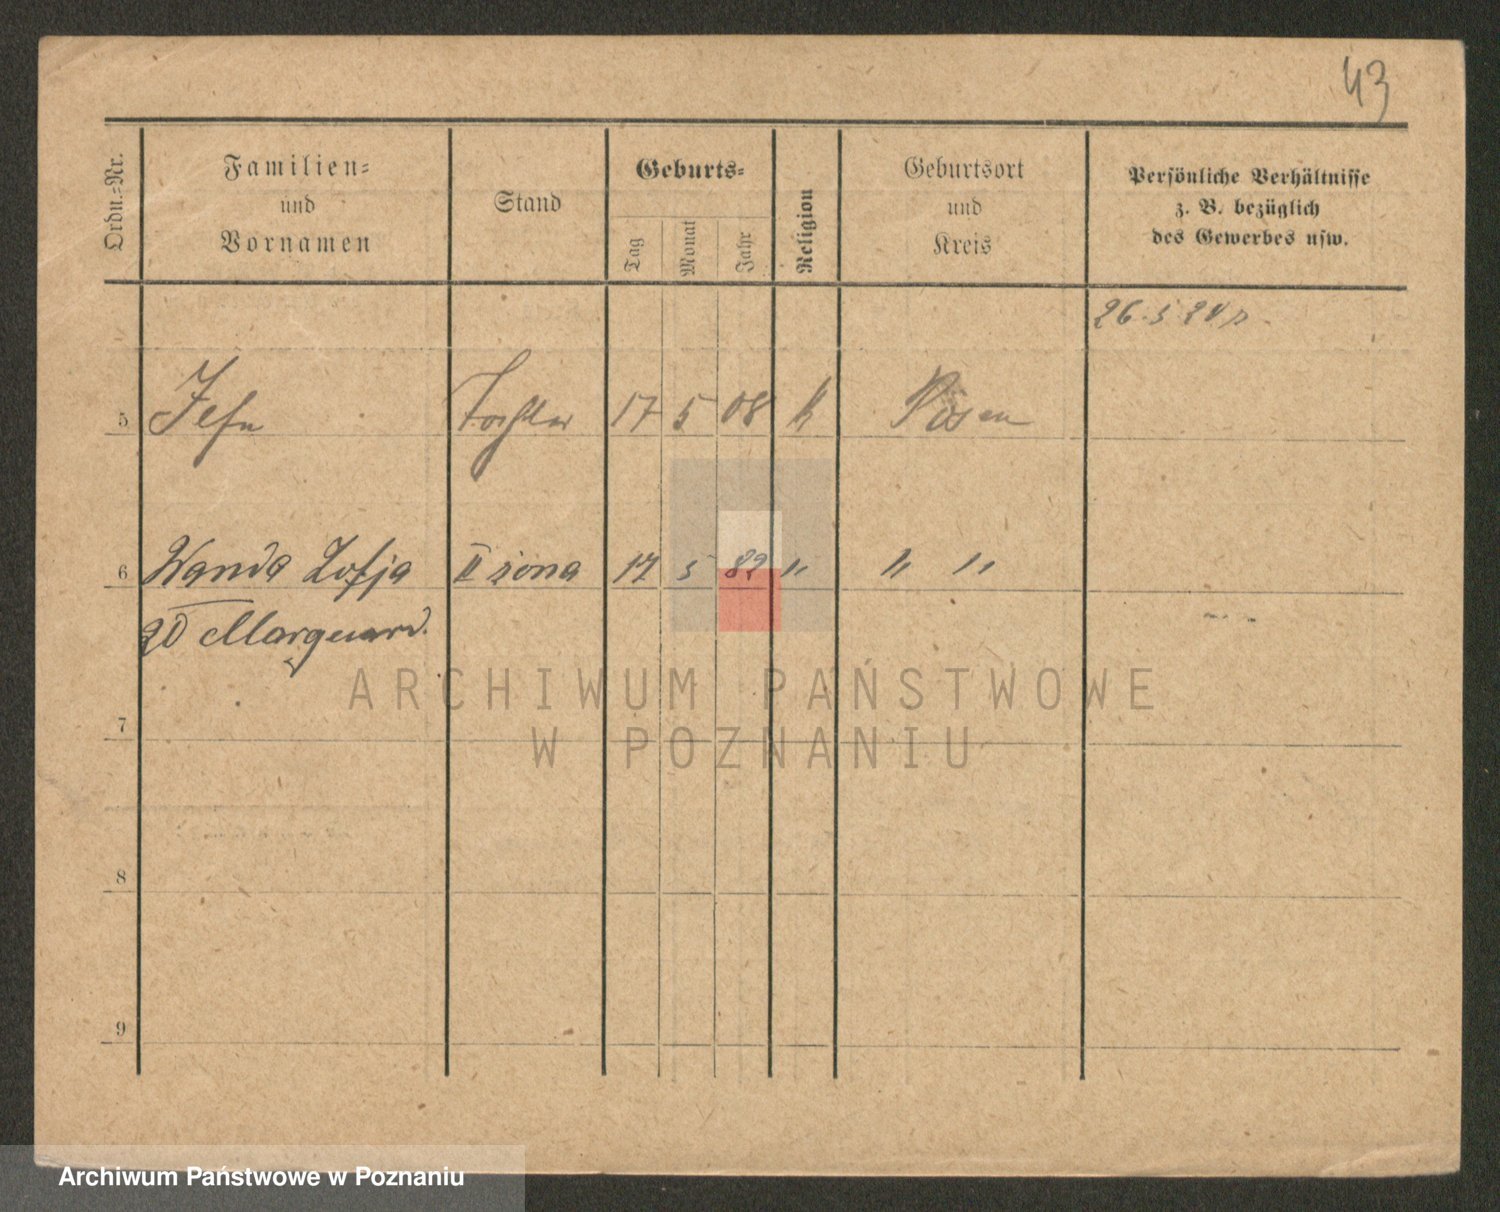 43
Ordn.-Nr.
Familien-
und
Vornamen
Stand
Geburts-
Tag
Monat
Jahr
Religion
Geburtsort
und
Kreis
Persönliche Verhältnisse
z. B. bezüglich
des Gewerbes usw.
26. 5. 24
5 Tochter 17 5 08 k Posen
6 Wanda Zofja II żona 17 5 82 " " "
zd Marquard.
7
8
9
ARCHIWUM PAŃSTWOWE
W POZNANIU
Archiwum Państwowe w Poznaniu